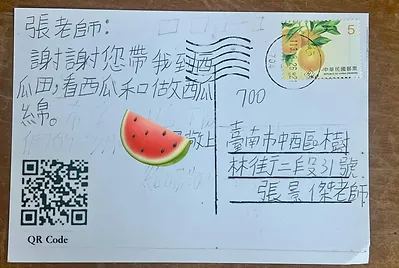 張老師:
謝謝您帶我到西
瓜田,看西瓜和做西瓜
綿。
敬上
QR Code
5
中華民國郵票
700
臺南市中西區樹
林街二段31號
張景傑老師